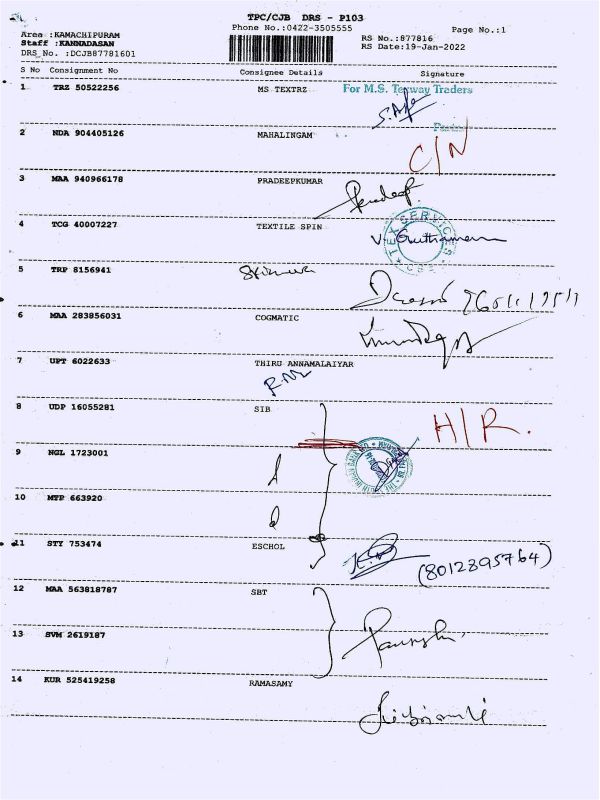 TPC/CJB DRS - P103
Phone No.:0422-3505555
Page No.:1
Area :KAMACHIPURAM
Staff :KANNADASAN
DRS No. :DCJB87781601
RS No.:877816
RS Date:19-Jan-2022
S No Consignment No Consignee Details Signature
1 TRZ 50522256 MS TEXTRZ For M.S. Texway Traders
2 NDA 904405126 MAHALINGAM
C/N
3 MAA 940966178 PRADEEPKUMAR
Pradeep
4 TCG 40007227 TEXTILE SPIN
TEX SERVICES
5 TRP 8156941
6 MAA 283856031 COGMATIC
7 UPT 6022633 THIRU ANNAMALAIYAR
8 UDP 16055281 SIB H/R.
9 NGL 1723001
10 MTP 663920
11 STY 753474 ESCHOL
(8012895764)
12 MAA 563818787 SBT
13 SVM 2619187
14 KUR 525419258 RAMASAMY